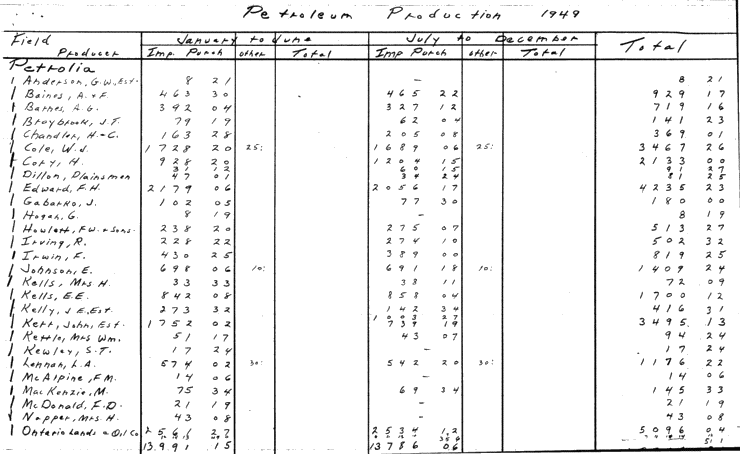 Petroleum Production 1949
Field January to June July to December Total
Producer Imp. Purch other Total Imp Purch other Total
Petrolia
1 Anderson, G.W., Est. 8 21 - 8 21
1 Baines, A. & F. 463 30 465 22 929 17
1 Barnes, A.G. 392 04 327 12 719 16
1 Braybrook, J.T. 79 19 62 04 141 23
1 Chandler, H.-C. 163 28 205 08 369 01
1 Cole, W.J. 1728 20 25: 1689 06 25: 3467 26
1 Cory, H. 928 20 1204 15 2133 00
31 12 60 15 91 27
1 Dillon, Plainsmen 47 01 34 24 81 25
1 Edward, F.H. 2179 06 2056 17 4235 23
1 Gabarko, J. 102 05 77 30 180 00
1 Hogan, G. 8 19 - 8 19
1 Howlett, F.W. & Sons. 238 20 275 07 513 27
1 Irving, R. 228 22 274 10 502 32
1 Irwin, F. 430 25 389 00 819 25
1 Johnson, E. 698 06 10: 691 18 10: 1409 24
1 Kells, Mrs H. 33 33 38 11 72 09
1 Kells, E.E. 842 08 858 04 1700 12
1 Kelly, J E, Est. 273 32 142 34 416 31
1003 27
1 Kerr, John, Est. 1752 02 739 19 3495 13
1 Kettle, Mrs Wm. 51 17 43 07 94 24
1 Kewley, S.T. 17 24 - 17 24
1 Lennan, L.A. 574 02 30: 542 20 30: 1176 22
1 McAlpine, F.M. 14 06 - 14 06
1 MacKenzie, M. 75 34 69 34 145 33
1 McDonald, F.D. 21 19 - 21 19
1 Napper, Mrs. H. 43 08 - 43 08
1 Ontario Lands & Oil Co 2561 27 2534 12 5096 04
13991 15 13786 06 511